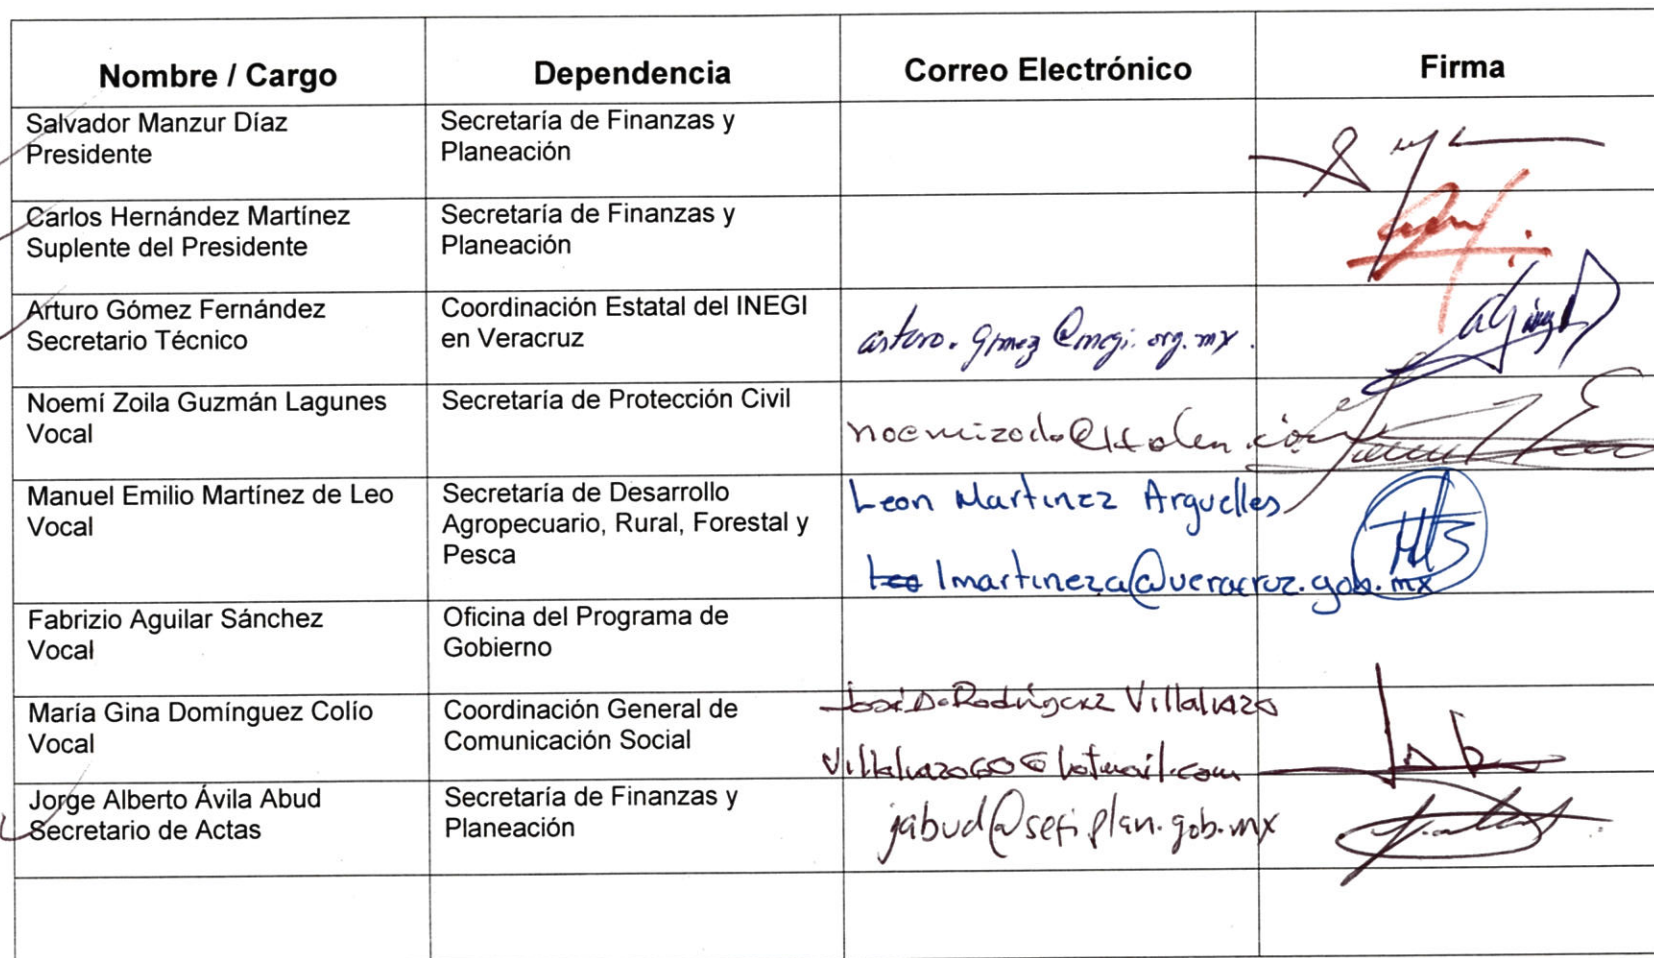 Nombre / Cargo
Dependencia
Correo Electrónico
Firma
Salvador Manzur Díaz
Presidente
Secretaría de Finanzas y
Planeación
Carlos Hernández Martínez
Suplente del Presidente
Secretaría de Finanzas y
Planeación
Arturo Gómez Fernández
Secretario Técnico
Coordinación Estatal del INEGI
en Veracruz
arturo.gomez@inegi.org.mx.
Noemí Zoila Guzmán Lagunes
Vocal
Secretaría de Protección Civil
Manuel Emilio Martínez de Leo
Vocal
Secretaría de Desarrollo
Agropecuario, Rural, Forestal y
Pesca
Leon Martinez Arguelles
lmartineza@veracruz.gob.mx
Fabrizio Aguilar Sánchez
Vocal
Oficina del Programa de
Gobierno
María Gina Domínguez Colío
Vocal
Coordinación General de
Comunicación Social
José D. Rodríguez Villalvazo
villalvazo60@hotmail.com
Jorge Alberto Ávila Abud
Secretario de Actas
Secretaría de Finanzas y
Planeación
jabud@sefiplan.gob.mx